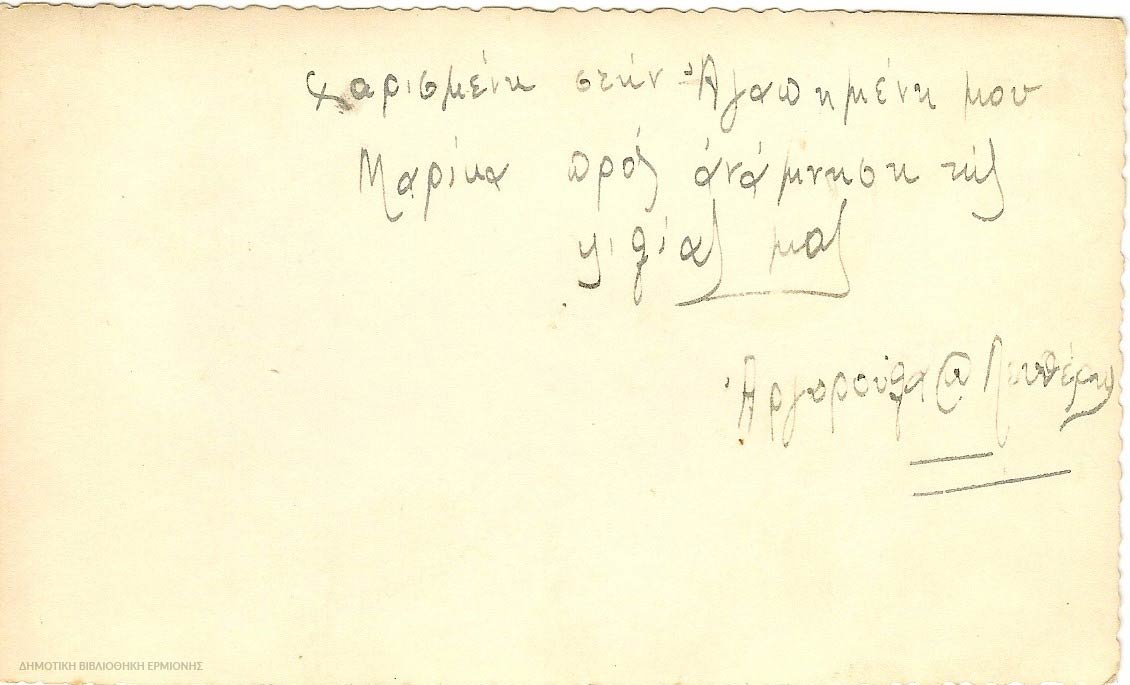 χαρισμένη στήν Ἀγαπημένη μου
Μαρίκα πρός ἀνάμνηση τής
φιλίας μας
Ἀργυρούλα
ΔΗΜΟΤΙΚΗ ΒΙΒΛΙΟΘΗΚΗ ΕΡΜΙΟΝΗΣ